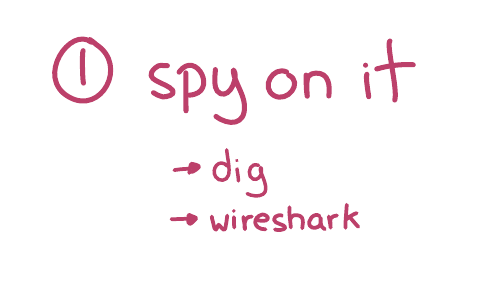 ① spy on it
→ dig
→ wireshark